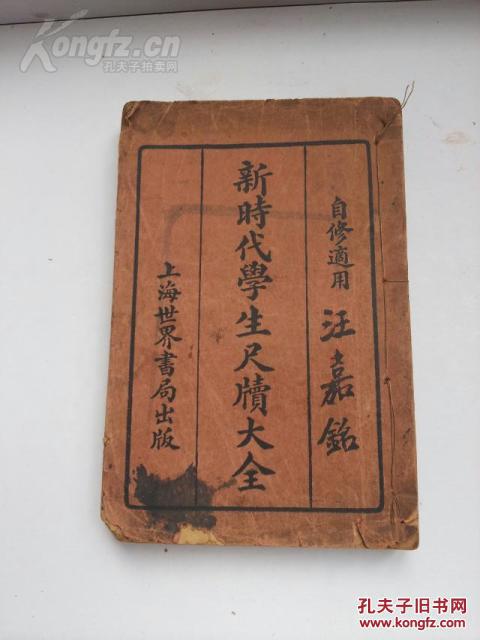 Kongfz.cn
孔夫子拍卖网
自修適用 汪嘉銘
新時代學生尺牘大全
上海世界書局出版
孔夫子旧书网
www.kongfz.com